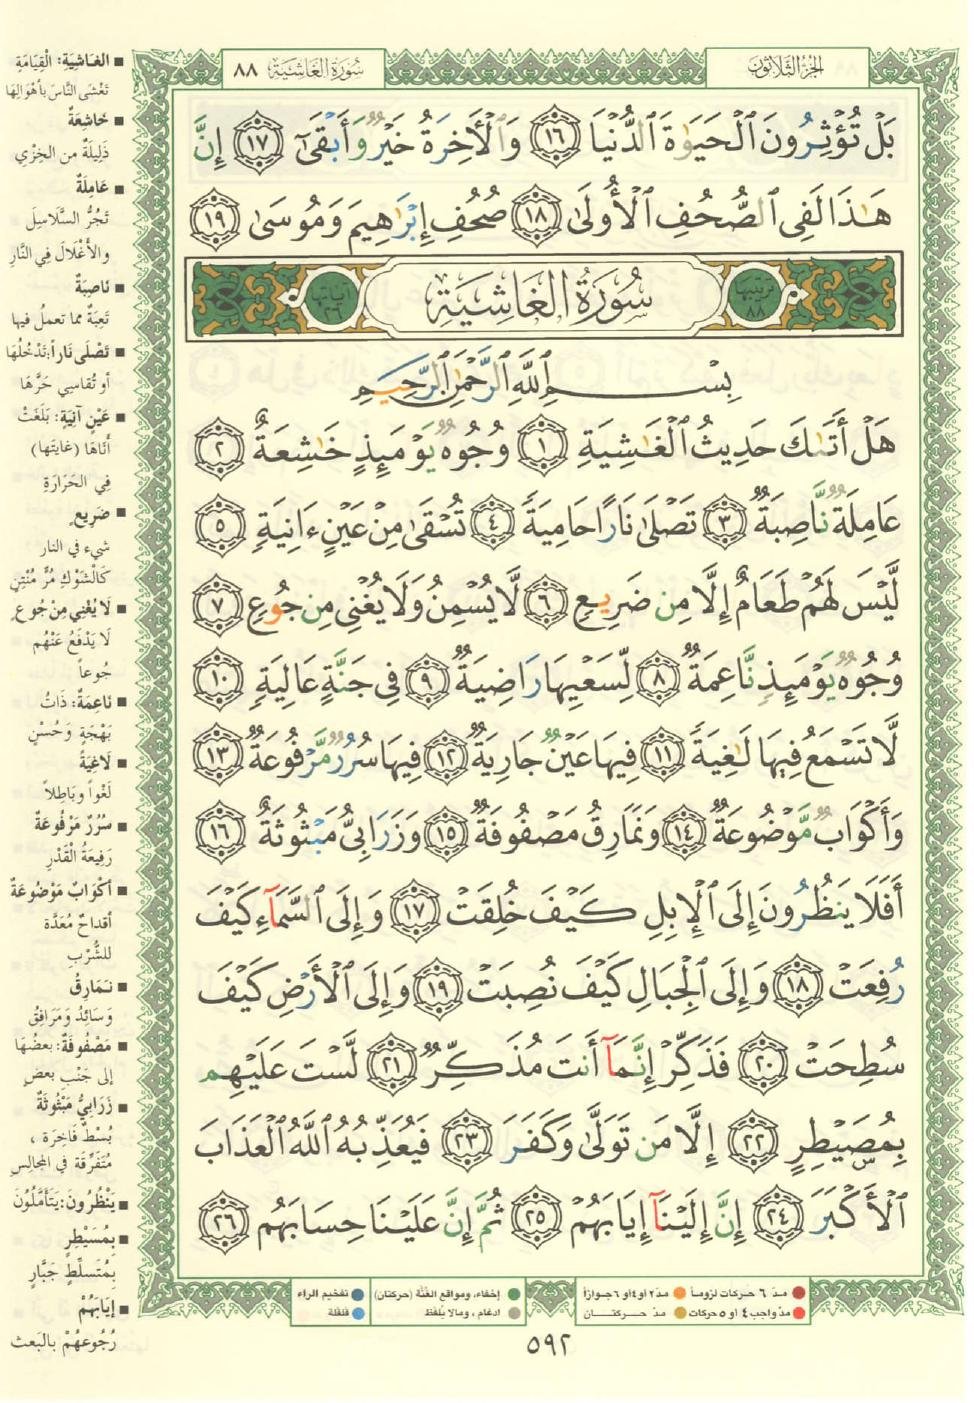 سُورَةُ الغَاشِيَة ٨٨
الجُزءُ الثَّلاثُون
بَلْ تُؤْثِرُونَ ٱلْحَيَوٰةَ ٱلدُّنْيَا ١٦ وَٱلْأٓخِرَةُ خَيْرٌ وَأَبْقَىٰٓ ١٧ إِنَّ
هَـٰذَا لَفِى ٱلصُّحُفِ ٱلْأُولَىٰ ١٨ صُحُفِ إِبْرَٰهِيمَ وَمُوسَىٰ ١٩
ترتيبها ٨٨ سُورَةُ الغَاشِيَةِ آياتها ٢٦
بِسْمِ ٱللَّهِ ٱلرَّحْمَـٰنِ ٱلرَّحِيمِ
هَلْ أَتَىٰكَ حَدِيثُ ٱلْغَـٰشِيَةِ ١ وُجُوهٌ يَوْمَئِذٍ خَـٰشِعَةٌ ٢
عَامِلَةٌ نَّاصِبَةٌ ٣ تَصْلَىٰ نَارًا حَامِيَةً ٤ تُسْقَىٰ مِنْ عَيْنٍ ءَانِيَةٍ ٥
لَّيْسَ لَهُمْ طَعَامٌ إِلَّا مِن ضَرِيعٍ ٦ لَّا يُسْمِنُ وَلَا يُغْنِى مِن جُوعٍ ٧
وُجُوهٌ يَوْمَئِذٍ نَّاعِمَةٌ ٨ لِّسَعْيِهَا رَاضِيَةٌ ٩ فِى جَنَّةٍ عَالِيَةٍ ١٠
لَّا تَسْمَعُ فِيهَا لَـٰغِيَةً ١١ فِيهَا عَيْنٌ جَارِيَةٌ ١٢ فِيهَا سُرُرٌ مَّرْفُوعَةٌ ١٣
وَأَكْوَابٌ مَّوْضُوعَةٌ ١٤ وَنَمَارِقُ مَصْفُوفَةٌ ١٥ وَزَرَابِىُّ مَبْثُوثَةٌ ١٦
أَفَلَا يَنظُرُونَ إِلَى ٱلْإِبِلِ كَيْفَ خُلِقَتْ ١٧ وَإِلَى ٱلسَّمَآءِ كَيْفَ
رُفِعَتْ ١٨ وَإِلَى ٱلْجِبَالِ كَيْفَ نُصِبَتْ ١٩ وَإِلَى ٱلْأَرْضِ كَيْفَ
سُطِحَتْ ٢٠ فَذَكِّرْ إِنَّمَآ أَنتَ مُذَكِّرٌ ٢١ لَّسْتَ عَلَيْهِم
بِمُصَيْطِرٍ ٢٢ إِلَّا مَن تَوَلَّىٰ وَكَفَرَ ٢٣ فَيُعَذِّبُهُ ٱللَّهُ ٱلْعَذَابَ
ٱلْأَكْبَرَ ٢٤ إِنَّ إِلَيْنَآ إِيَابَهُمْ ٢٥ ثُمَّ إِنَّ عَلَيْنَا حِسَابَهُم ٢٦
■ الغَاشِيَةِ: الْقِيَامَةِ
تَغْشَى النَّاسَ بأهْوَالِهَا
■ خَاشِعَةٌ
ذَلِيلَةٌ من الخِزْيِ
■ عَامِلَةٌ
تَجُرُّ السَّلَاسِلَ
والأغْلَالَ فِي النَّارِ
■ نَاصِبَةٌ
تَعِبَةٌ مما تعملُ فيها
■ تَصْلَى نَاراً: تَدْخُلُهَا
أو تُقَاسِي حَرَّهَا
■ عَيْنٍ آنِيَةٍ: بَلَغَتْ
أَنَاهَا (غايَتَها)
فِي الحَرَارَةِ
■ ضَرِيعٍ
شيء في النار
كَالشَّوْكِ مُرٌّ مُنْتِنٍ
■ لَا يُغْنِي مِنْ جُوعٍ
لَا يَدْفَعُ عَنْهُم
جُوعاً
■ نَاعِمَةٌ: ذَاتُ
بَهْجَةٍ وَحُسْنٍ
■ لَاغِيَةً
لَغْواً وبَاطِلاً
■ سُرُرٌ مَرْفُوعَةٌ
رَفِيعَةُ الْقَدْرِ
■ أكْوَابٌ مَوْضُوعَةٌ
أقداحٌ مُعَدَّة
للشُّرْبِ
■ نَمَارِقُ
وَسَائِدُ وَمَرَافِقُ
■ مَصْفُوفَةٌ: بعضُهَا
إلى جَنْبِ بعضٍ
■ زَرَابِيُّ مَبْثُوثَةٌ
بُسُطٌ فَاخِرَة،
مُتَفَرِّقَة في المجالِسِ
■ يَنْظُرُونَ: يَتَأَمَّلُونَ
■ بِمُسَيْطِرٍ
بِمُتَسلِّطٍ جَبَّارٍ
■ إِيَابَهُمْ
رُجُوعهُمْ بالبَعث
مـد ٦ حـركات لزومـاً ● مد ٢ أو ٤ أو ٦ جـوازاً
مدّ واجب ٤ أو ٥ حركات ● مد حـركـتـــان
إخفاء، ومواقع الغُنَّة (حركتان) ● تفخيم الراء
ادغام، ومالا يُلفَظ ● قلقلة
٥٩٢